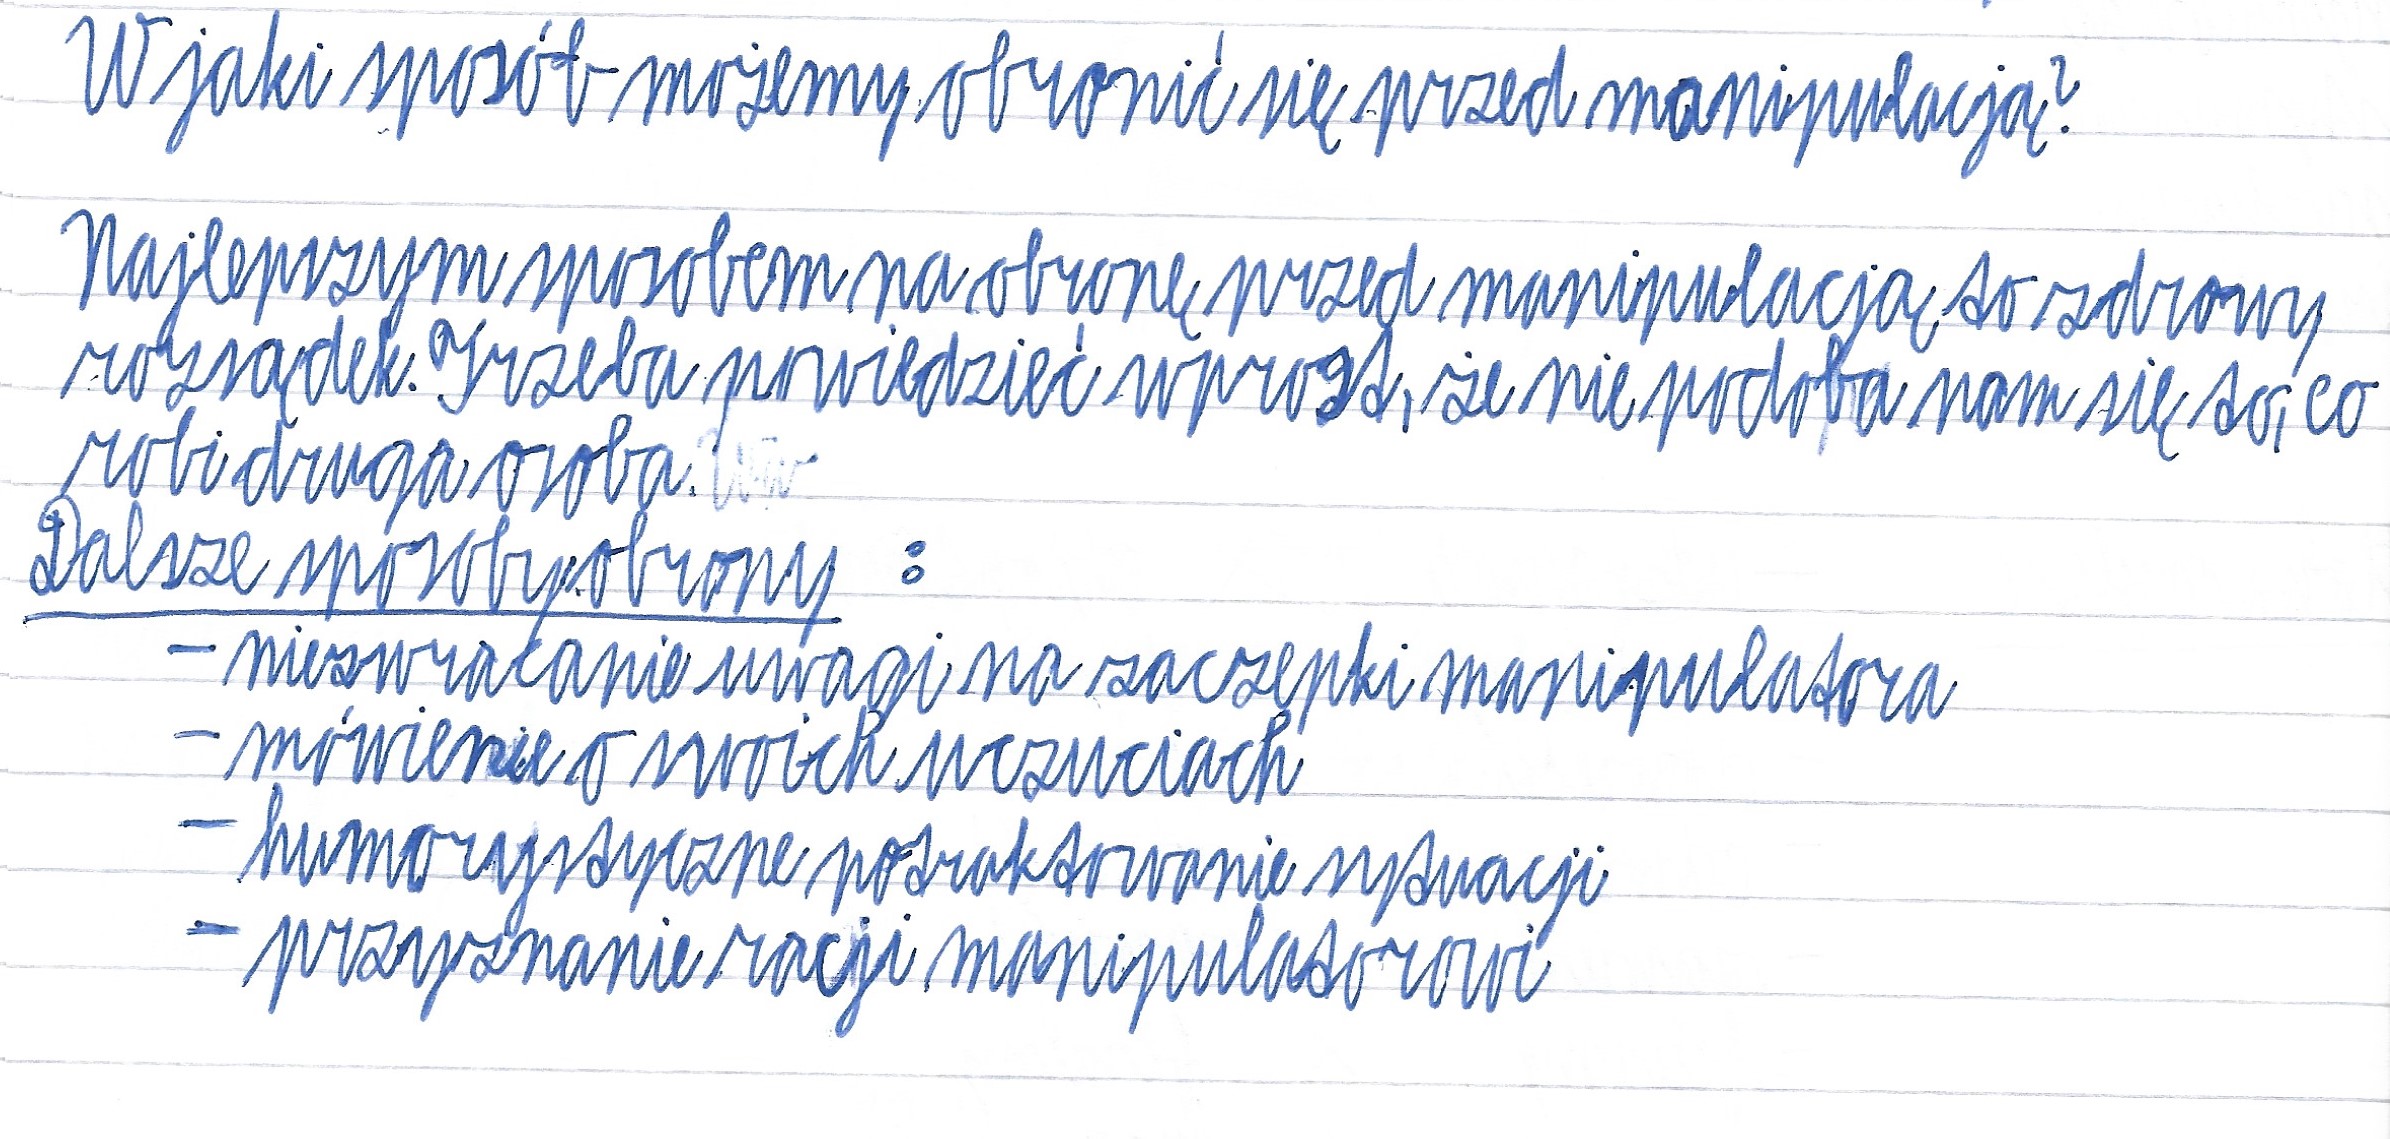 W jaki sposób możemy obronić się przed manipulacją?
Najlepszym sposobem na obronę przed manipulacją, to zdrowy
rozsądek. Trzeba powiedzieć wprost, że nie podoba nam się to, co
robi druga osoba.
Dalsze sposoby obrony :
- niezwracanie uwagi na zaczepki manipulatora
- mówienie o swoich uczuciach
- humorystyczne potraktowanie sytuacji
- przyznanie racji manipulatorowi